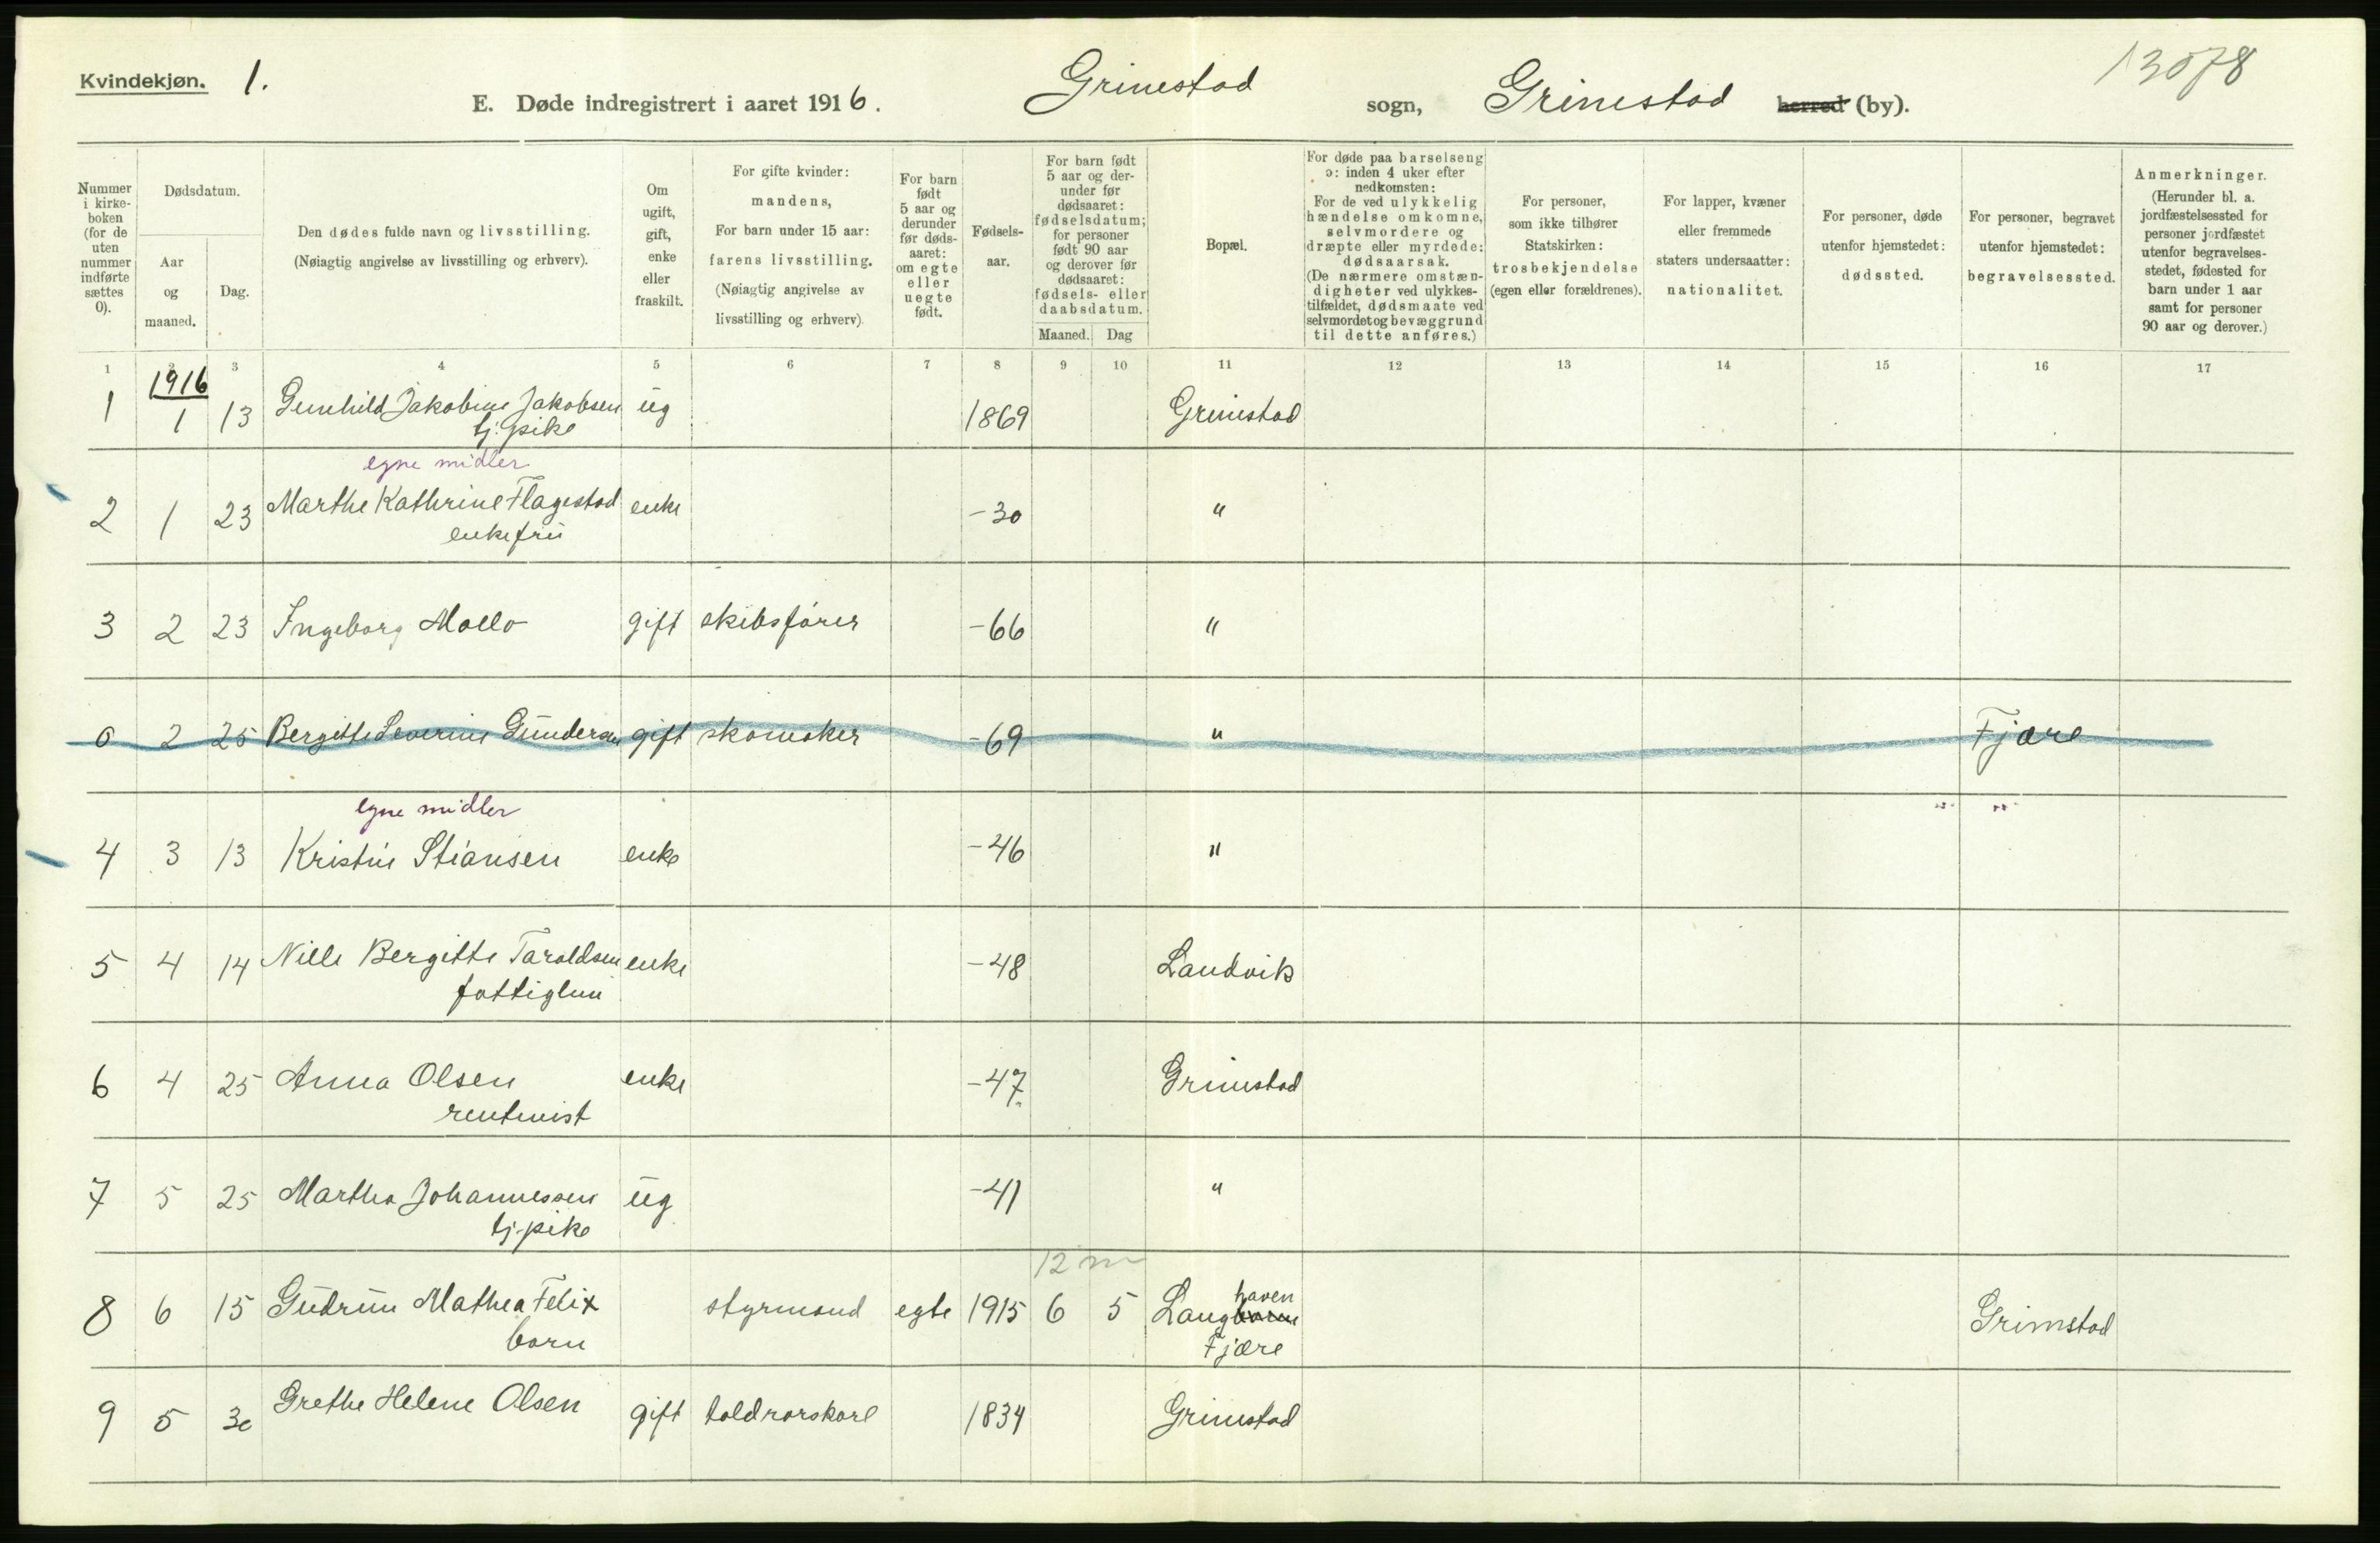 Kvindekjøn. 1.
13078
E. Døde indregistrert i aaret 1916. Grimestad sogn, Grimestad herred (by).
Nummer i kirke-boken (for de uten nummer indførte sættes 0).
Dødsdatum.
Aar og maaned.
Dag.
Den dødes fulde navn og livsstilling.
(Nøiagtig angivelse av livsstilling og erhverv).
Om ugift, gift, enke eller fraskilt.
For gifte kvinder: mandens,
For barn under 15 aar: farens livsstilling.
(Nøiagtig angivelse av livsstilling og erhverv).
For barn født 5 aar og derunder før døds-aaret: om egte eller uegte født.
Fødsels-aar.
For barn født 5 aar og der-under før dødsaaret: fødselsdatum; for personer født 90 aar og derover før dødsaaret: fødsels- eller daabsdatum.
Maaned. Dag
Bopæl.
For døde paa barselseng ɔ: inden 4 uker efter nedkomsten:
For de ved ulykkelig hændelse omkomne, selvmordere og dræpte eller myrdede: dødsaarsak.
(De nærmere omstæn-digheter ved ulykkes-tilfældet, dødsmaate ved selvmordet og bevæggrund til dette anføres.)
For personer, som ikke tilhører Statskirken: trosbekjendelse (egen eller forældrenes).
For lapper, kvæner eller fremmede staters undersaatter: nationalitet.
For personer, døde utenfor hjemstedet: dødssted.
For personer, begravet utenfor hjemstedet: begravelsessted.
Anmerkninger.
(Herunder bl. a. jordfæstelsessted for personer jordfæstet utenfor begravelses-stedet, fødested for barn under 1 aar samt for personer 90 aar og derover.)
1 2 3 4 5 6 7 8 9 10 11 12 13 14 15 16 17
1916
1 1 13 Gunhild Jakobine Jakobsen ug 1869 Grimestad
tj. pike
egne midler
2 1 23 Marthe Kathrine Flagestad enke -30 "
enkefru
3 2 23 Ingeborg Mollo gift skibsfører -66 "
0 2 25 Bergitte Severine Gundersen gift skomaker -69 " Fjære
egne midler
4 3 13 Kristine Stiansen enke -46 "
5 4 14 Nille Bergitte Taraldsen enke -48 Landvik
fattiglem
6 4 25 Anna Olsen enke -47 Grimstad
rentenist
7 5 25 Martha Johannessen ug -41 "
tj.pike
12 m
8 6 15 Gudrun Mathea Felix styrmand egte 1915 6 5 Langhaven Grimstad
barn Fjære
9 5 30 Grethe Helene Olsen gift toldrorskarl 1834 Grimstad